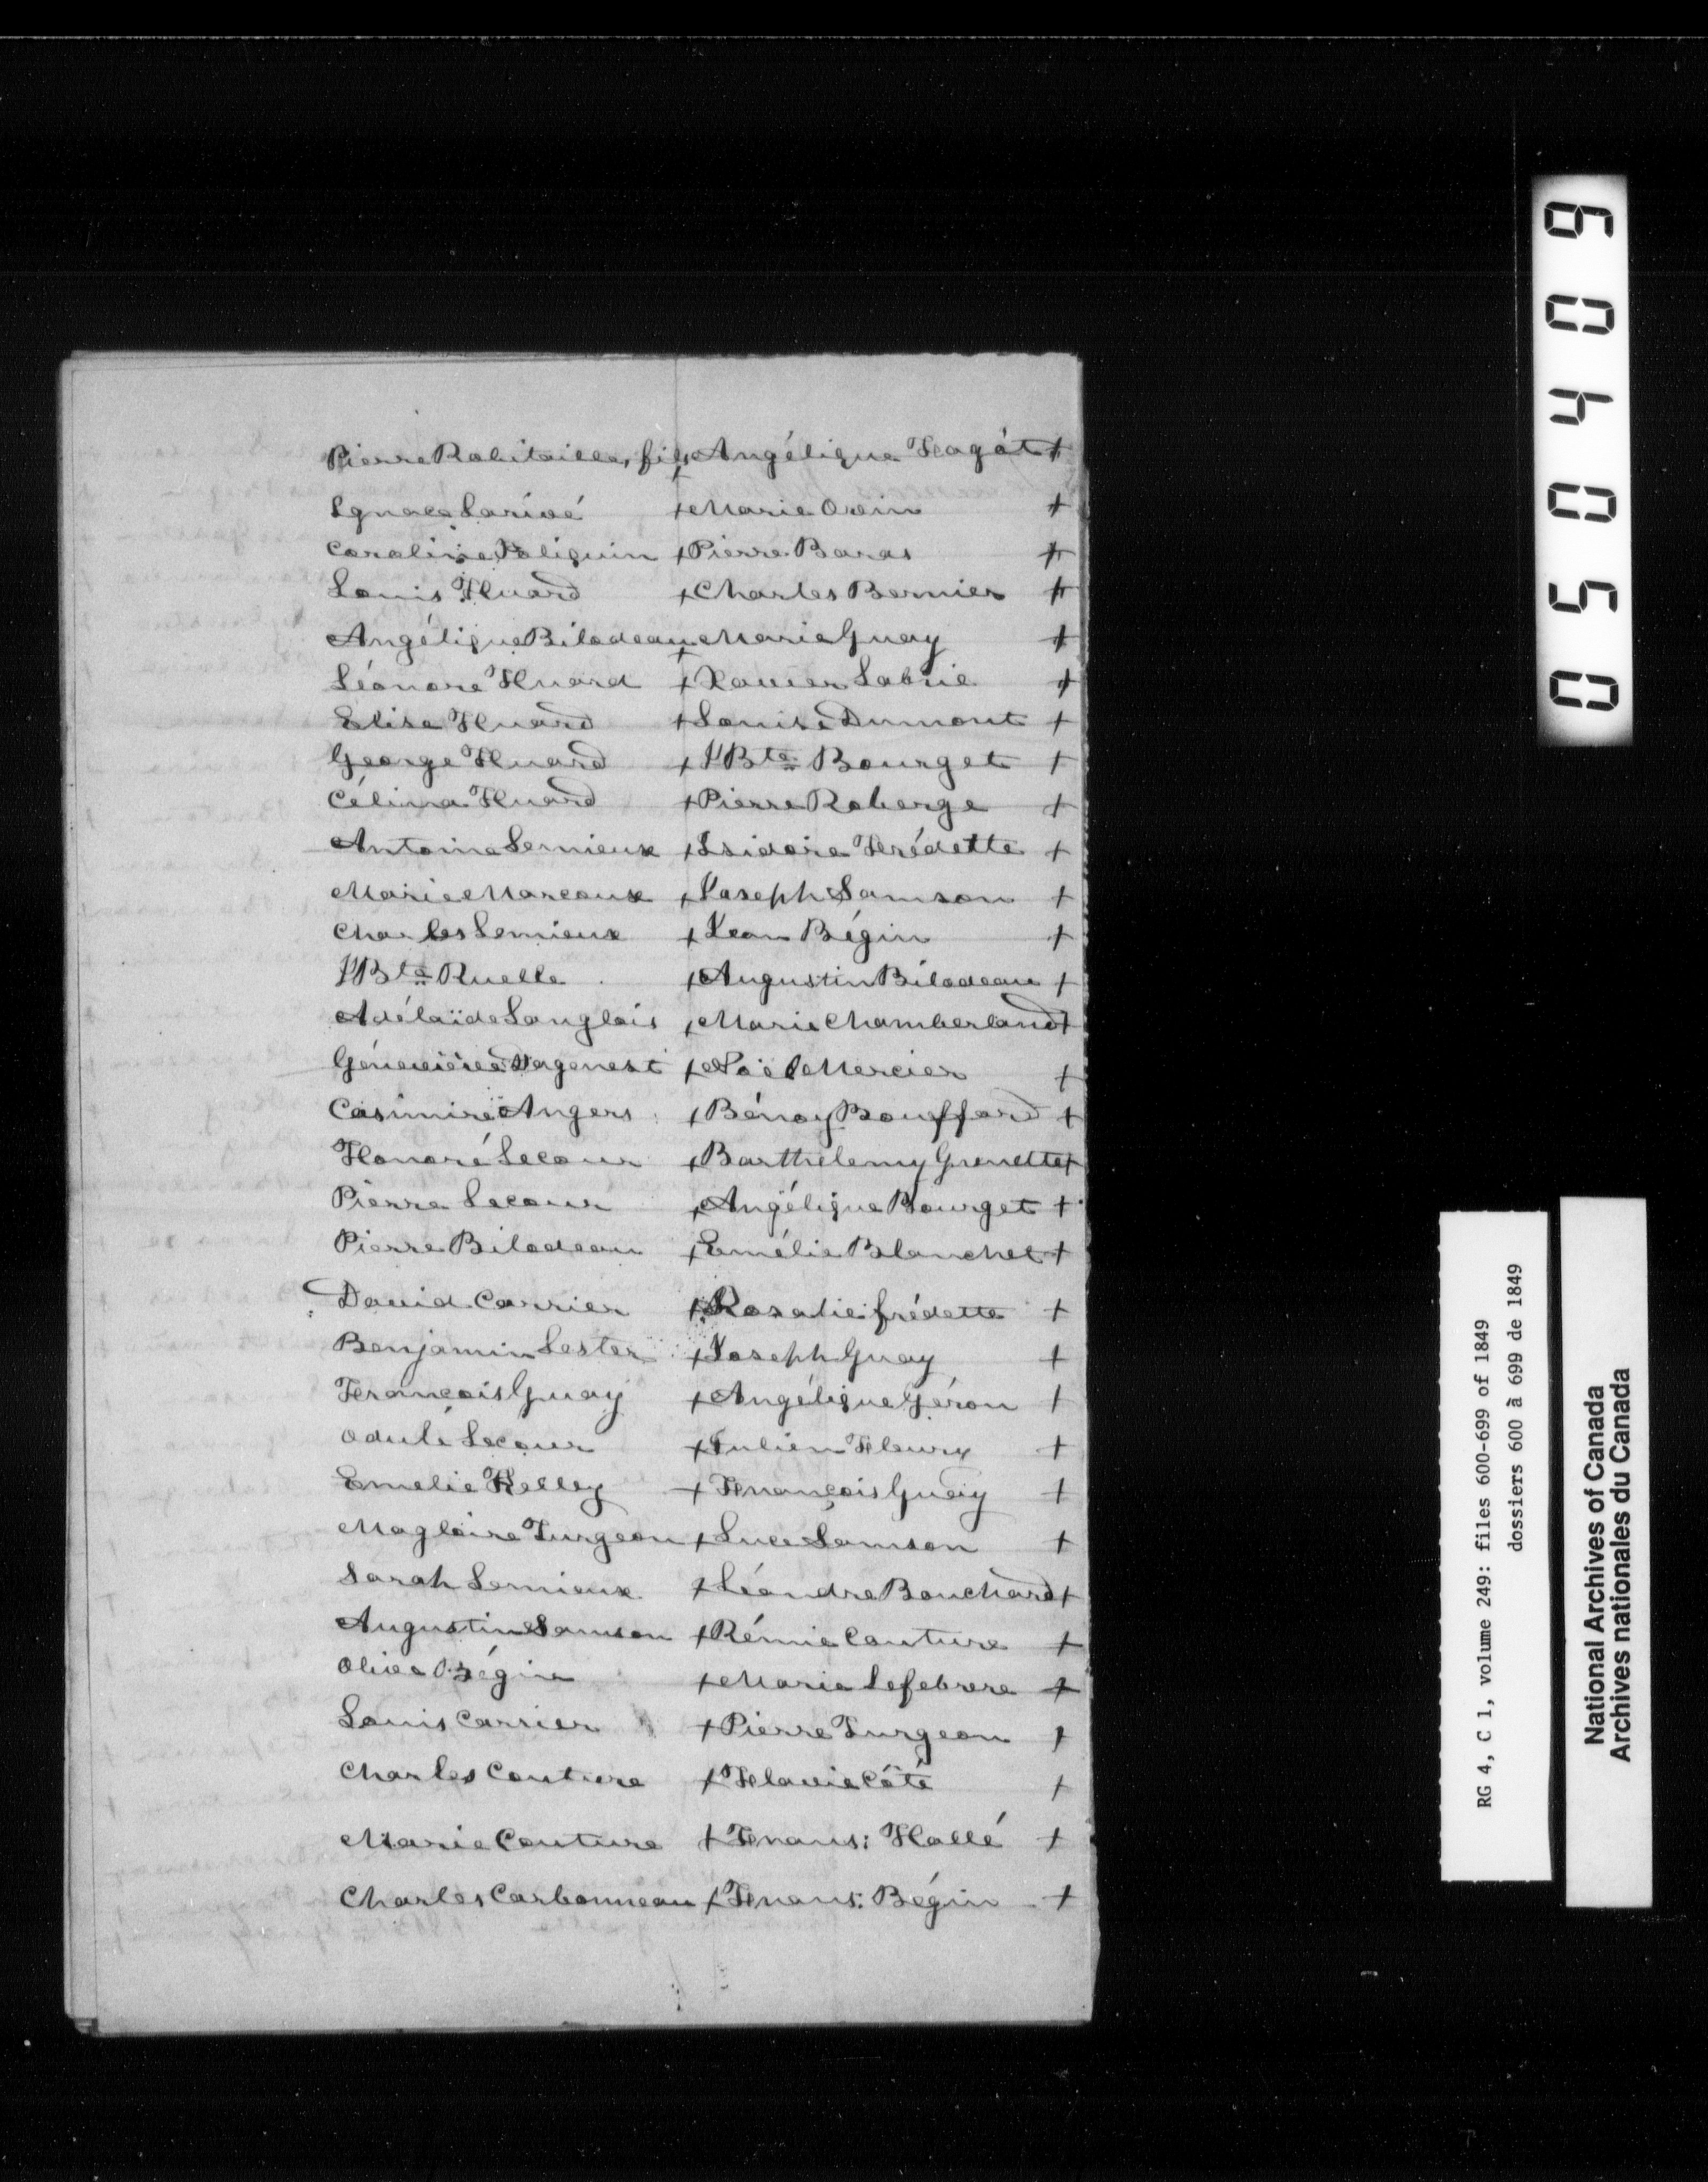 Pierre Robitaille, fils + Angélique Fagót +
Ignace Larivé + Marie Ouin +
Caroline Poliquin + Pierre Baras +
Louis Huard + Charles Bernier +
Angélique Bilodeau + Marie Guay +
Léonore Huard + Xavier Labrie +
Elise Huard + Louise Dumont +
George Huard + J Bte Bourget +
Célina Huard + Pierre Roberge +
Antoine Lemieux + Isidore Frédette +
Marie Marcoux + Joseph Samson +
Charles Lemieux + Jean Bégin +
J Bte Ruelle + Augustin Bilodeau +
Adélaïde Langlois + Marie Chamberland +
Géneviève Dagenest + Noël Mercier +
Casimire Angers + Bénoy Bouffard +
Honoré Lecour + Barthélemy Grenette +
Pierre Lecour + Angélique Bourget +
Pierre Bilodeau + Emélie Blanchet +
David Carrier + Rosalie frédette +
Benjamin Lester + Joseph Guay +
François Guay + Angélique Géron +
Odule Lecour + Julien Fleury +
Emelie Kelley + François Guay +
Magloire Turgeon + Luce Samson +
Sarah Lemieux + Léandre Bouchard +
Augustin Samson + Rémie Couture +
Olive Bégin + Marie Lefebvre +
Louis Carrier + Pierre Turgeon +
Charles Couture + Flavie Côté +
Marie Couture + Frans: Hallé +
Charles Carbonneau + Frans: Bégin +
050409
RG 4, C 1, volume 249: files 600-699 of 1849
dossiers 600 à 699 de 1849
National Archives of Canada
Archives nationales du Canada